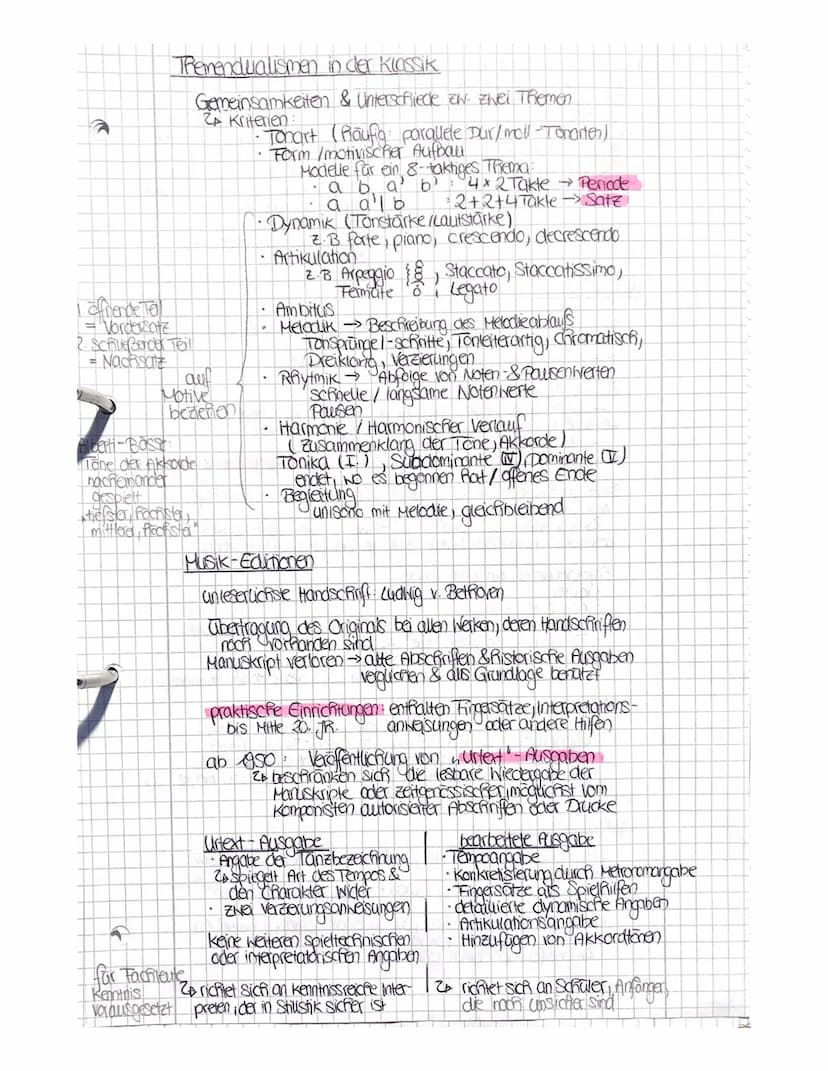 Themendualismen in der Klassik
Gemeinsamkeiten & Unterschiede zw. zwei Themen
↳ Kriterien:
· Tonart (häufig: parallele Dur/moll-Tonarten)
· Form/motivischer Aufbau
Modelle für ein 8-taktiges Thema:
· a b a' b' : 4x2 Takte → Periode
· a a'|b : 2+2+4 Takte → Satz
· Dynamik (Tonstärke/Lautstärke)
z.B forte, piano, crescendo, decrescendo
· Artikulation
z.B Arpeggio, Staccato, Staccatissimo,
Fermate, Legato
1 öffnende Teil
= Vordersatz
2. Schließender Teil
= Nachsatz
· Ambitus
· Melodik → Beschreibung des Melodieablaufs
Tonsprünge/-schritte, tonleiterartig, chromatisch,
Dreiklang, Verzierungen
auf
Motive
beziehen
· Rhytmik → Abfolge von Noten-& Pausenwerten
schnelle / langsame Notenwerte
Pausen
· Harmonie / Harmonischer Verlauf
(Zusammenklang der Töne, Akkorde)
Tonika (I.), Subdominante (IV), Dominante (V)
endet, wo es begonnen hat / offenes Ende
· Begleitung
unisono mit Melodie, gleichbleibend
Alberti-Bässe:
Töne der Akkorde
nacheinander
gespielt
„tiefster, höchster,
mittlerer, höchster"
Musik-Editionen
unleserlichste Handschrift: Ludwig v. Bethoven
Übertragung des Originals bei allen Werken, deren Handschriften
noch vorhanden sind
Manuskript verloren → alte Abschriften & historische Ausgaben
verglichen & als Grundlage benutzt
praktische Einrichtungen: enthalten Fingersätze, Interpretations-
bis Mitte 20. Jh. anweisungen oder andere Hilfen
ab 1950: Veröffentlichung von „Urtext"-Ausgaben
↳ beschränken sich die lesbare Wiedergabe der
Manuskripte oder zeitgenössischer, möglichst vom
Komponisten autorisierter Abschriften oder Drucke
Urtext-Ausgabe
· Angabe der Tanzbezeichnung
↳ spiegelt Art des Tempos &
den Charakter wider
· zwei Verzierungsanweisungen
keine weiteren spieltechnischen
oder interpretatorischen Angaben
↳ richtet sich an kenntnissreiche Inter-
preten, der in Stilistik sicher ist
für Fachleute
Kenntnis
vorausgesetzt
bearbeitete Ausgabe
· Tempoangabe
· Konkretisierung durch Metronomangabe
· Fingersätze als Spielhilfen
· detaillierte dynamische Angaben
· Artikulationsangabe
· Hinzufügen von Akkordtönen
↳ richtet sich an Schüler, Anfänger,
die noch unsicher sind